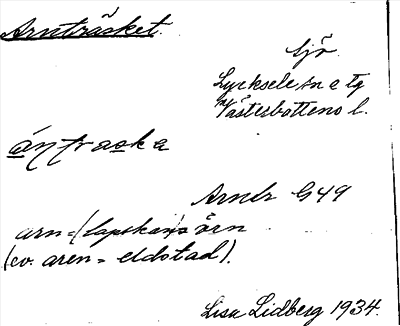 Arnträsket.
Sjö.
Lycksele sn o tg
Västerbottens l.
áṇtraska
Arndr G49
arn = (lapskan) = örn
(ev. aren = eldstad).
Lisa Lidberg 1934.